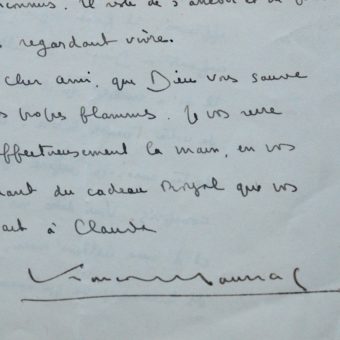 connus. Il reste de s'asseoir et de
regardant vivre.
cher ami, que Dieu vous sauve
propres flammes. Je vous serre
affectueusement la main, en vous
du cadeau Royal que vous
à Claude